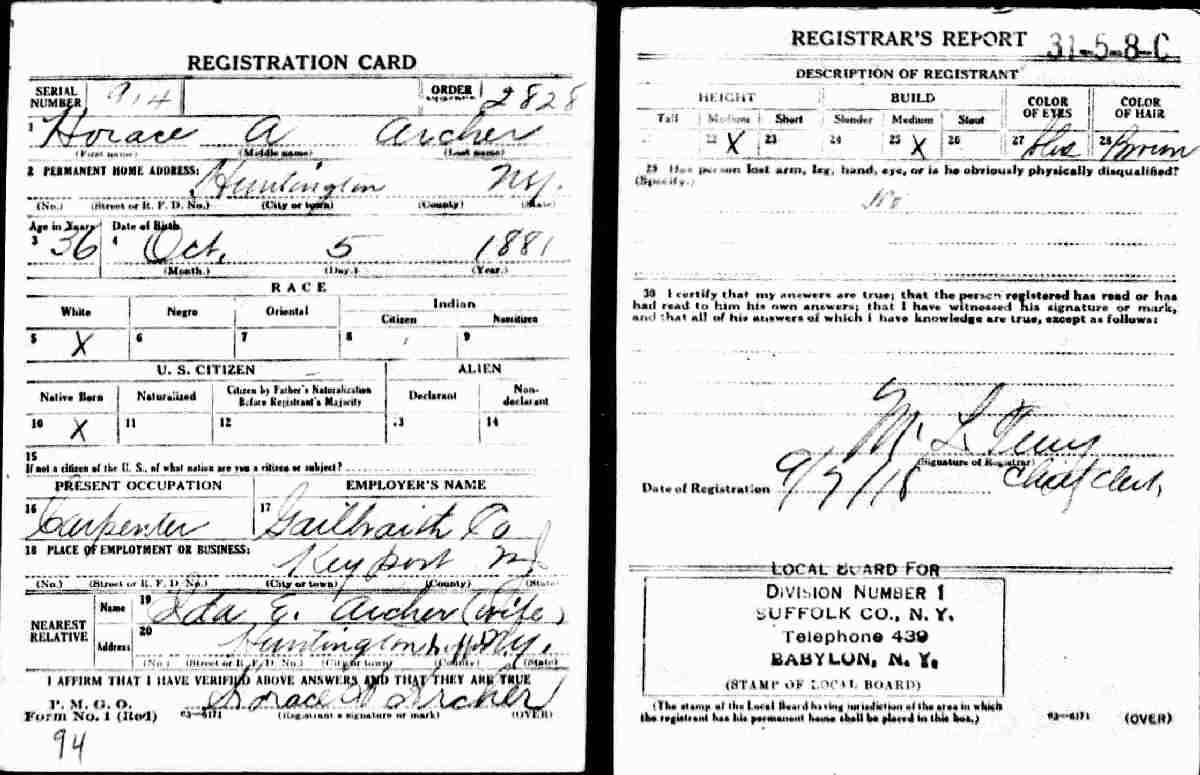 REGISTRATION CARD
SERIAL NUMBER 914 ORDER NUMBER 2828
1 Horace A Archer
(First name) (Middle name) (Last name)
2 PERMANENT HOME ADDRESS: Huntington N.Y.
(No.) (Street or R. F. D. No.) (City or town) (County) (State)
Age in Years Date of Birth
3 36 4 Oct. 5 1881
(Month.) (Day.) (Year.)
RACE
White Negro Oriental Indian
Citizen Noncitizen
5 X 6 7 8 9
U. S. CITIZEN ALIEN
Native Born Naturalized Citizen by Father's Naturalization Before Registrant's Majority Declarant Non-declarant
10 X 11 12 13 14
15
If not a citizen of the U. S., of what nation are you a citizen or subject?
PRESENT OCCUPATION EMPLOYER'S NAME
16 Carpenter 17 Gailbraith Co
18 PLACE OF EMPLOYMENT OR BUSINESS:
Keyport N.J.
(No.) (Street or R. F. D. No.) (City or town) (County) (State)
NEAREST RELATIVE Name 19 Ida E. Archer (wife)
Address 20 Huntington Suff N.Y.
(No.) (Street or R. F. D. No.) (City or town) (County) (State)
I AFFIRM THAT I HAVE VERIFIED ABOVE ANSWERS AND THAT THEY ARE TRUE
P. M. G. O.
Form No. 1 (Red) 03—6171 Horace A Archer
(Registrant's signature or mark) (OVER)
94
REGISTRAR'S REPORT 31-5-8-C
DESCRIPTION OF REGISTRANT
HEIGHT BUILD COLOR OF EYES COLOR OF HAIR
Tall Medium Short Slender Medium Stout
21 22 X 23 24 25 X 26 27 28 Brown
29 Has person lost arm, leg, hand, eye, or is he obviously physically disqualified?
(Specify.) No
30 I certify that my answers are true; that the person registered has read or has
had read to him his own answers; that I have witnessed his signature or mark,
and that all of his answers of which I have knowledge are true, except as follows:
(Signature of Registrar)
Chief Clerk.
Date of Registration 9/7/18
LOCAL BOARD FOR
DIVISION NUMBER 1
SUFFOLK CO., N. Y.
Telephone 439
BABYLON, N. Y.
(STAMP OF LOCAL BOARD)
(The stamp of the Local Board having jurisdiction of the area in which
the registrant has his permanent home shall be placed in this box.) 03—6171 (OVER)